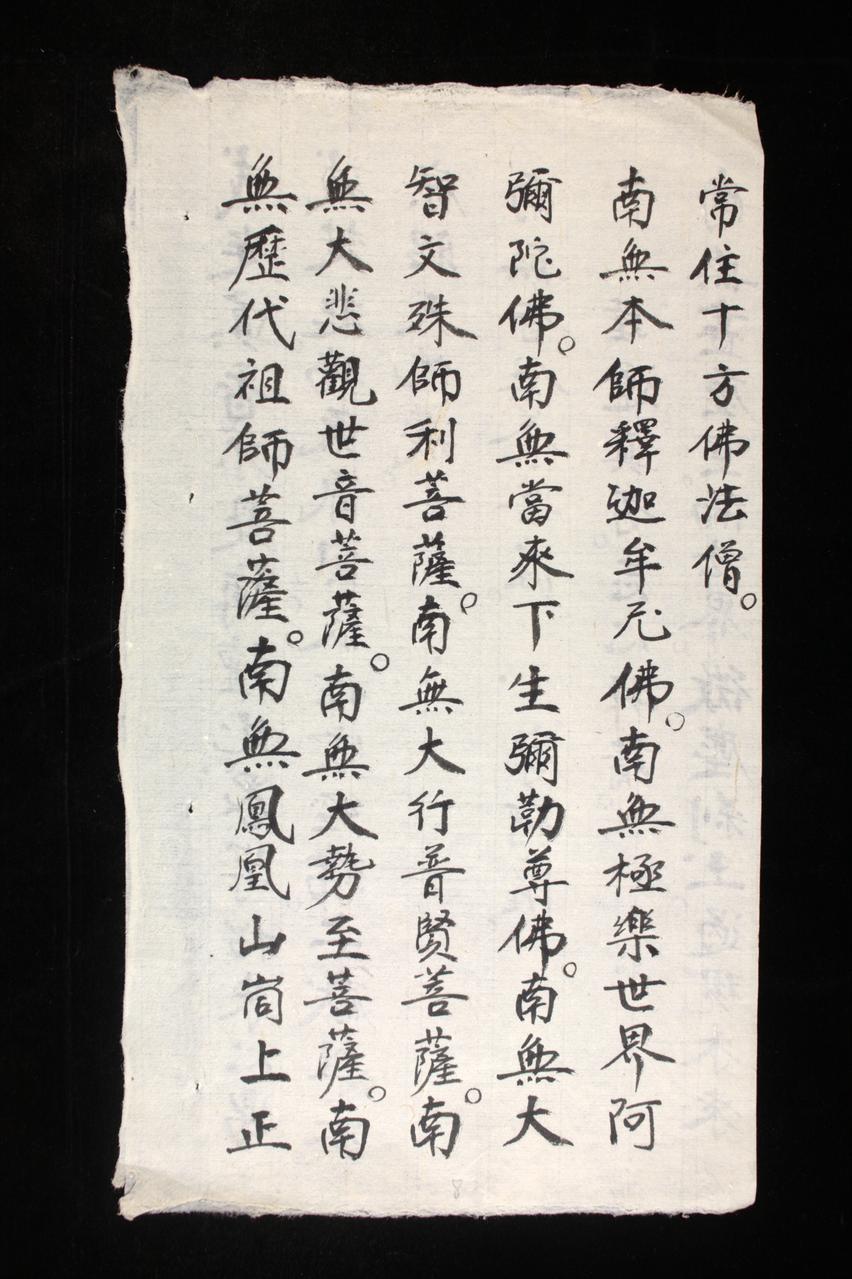 常住十方佛法僧。
南無本師釋迦牟尼佛。南無極樂世界阿
彌陀佛。南無當來下生彌勒尊佛。南無大
智文殊師利菩薩。南無大行普賢菩薩。南
無大悲觀世音菩薩。南無大勢至菩薩。南
無歷代祖師菩薩。南無鳳凰山崗上正
8